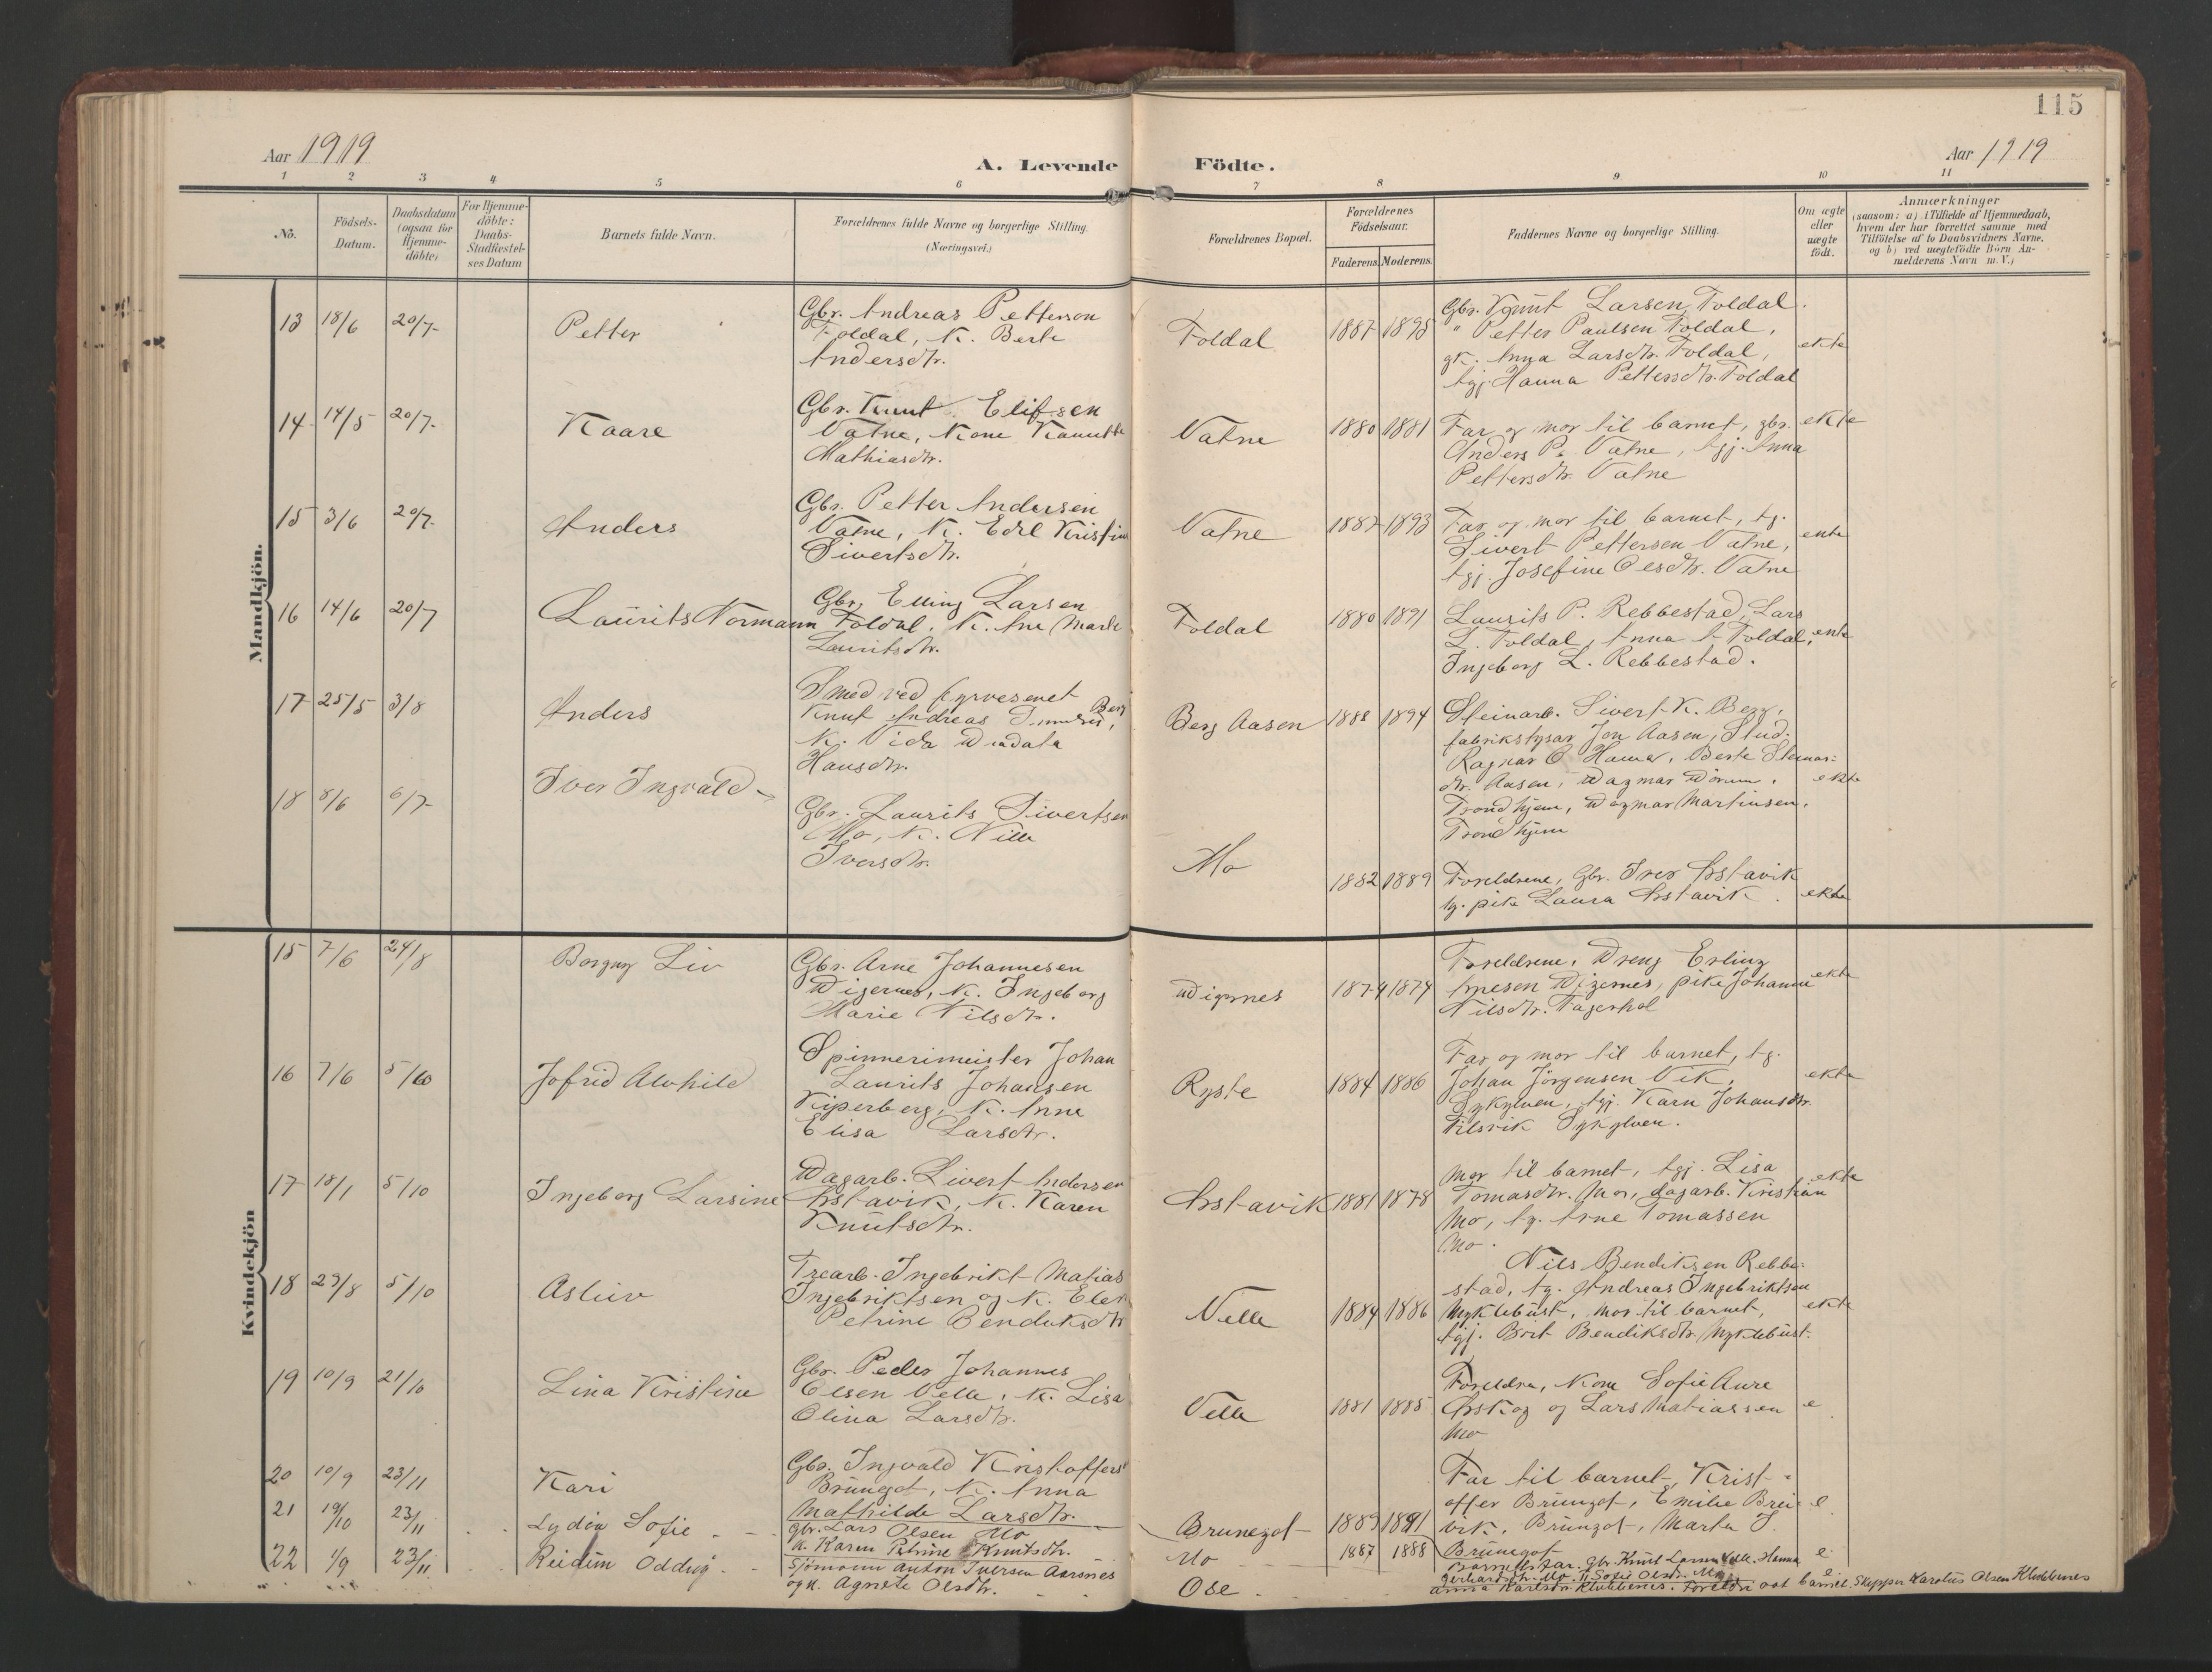 115
Aar 1919
A. Levende Födte.
Aar 1919
1 2 3 4 5 6 7 8 9 10 11
No.
Födsels-Datum.
Daabsdatum (ogsaa for Hjemme-döbte)
For Hjemme-döbte: Daabs-Stadfæstel-ses Datum
Barnets fulde Navn.
Forældrenes fulde Navne og borgerlige Stilling.
(Næringsvei.)
Forældrenes Bopæl.
Forældrenes Födselsaar.
Faderens. Moderens.
Faddernes Navne og borgerlige Stilling.
Om ægte eller uægte födt.
Anmærkninger
(saasom: a) i Tilfælde af Hjemmedaab,
hvem der har forrettet samme med
Tilföielse af to Daabsvidners Navne,
og b) ved uægtefödte Börn An-
melderens Navn m. V.)
Mandkjön.
13 18/6 20/7 Petter
Gbr. Andreas Petterson
Foldal, K. Berte
Andersdtr.
Foldal 1887 1895
Gbr. Knut Larsen Foldal.
" Petter Paulsen Foldal,
gk. Anna Larsdtr. Foldal,
tgj. Hanna Pettersdtr. Foldal
ekte
14 14/5 20/7 Kaare
Gbr. Knut Elifsen
Vatne, Kone Kanutte
Mathiasdtr.
Vatne 1880 1881
Far og mor til barnet, gbr.
Anders P. Vatne, tgj. Anna
Pettersdtr. Vatne
ekte
15 3/6 20/7 Anders
Gbr. Petter Andersen
Vatne, K. Edel Kristine
Sivertsdtr.
Vatne 1887 1893
Far og mor til barnet, tg.
Sivert Pettersen Vatne,
tgj. Josefine Olesdtr. Vatne
ekte
16 14/6 20/7 Laurits Normann
Gbr. Elling Larsen
Foldal, K. Ane Marte
Lauritsdtr.
Foldal 1880 1891
Laurits P. Rebbestad, Lars
L. Foldal, Anna A. Foldal,
Ingeborg L. Rebbestad.
ekte
17 25/5 3/8 Anders
Smed ved fyrvesenet
Knut Andreas Berg,
K. Vida
Hansdtr.
Berg Aasen 1888 1894
Steinarb. Sivert K. Berg,
Jon Aasen, Stud.
Ragnar O. Hamer, Berte Steinar-
dtr. Aasen, Dagmar
Trondhjem, Dagmar Martinsen,
Trondhjem
ekte
18 8/6 6/7 Iver Ingvald
Gbr. Laurits Sivertsen
Mo, K. Nille
Iversdtr.
Mo 1882 1889
Foreldrene, Gbr. Iver Arstavik
tg. pike Laura Arstavik.
ekte
Kvindekjön
15 7/6 24/8 Borgny Liv
Gbr. Arne Johannesen
Digernes, K. Ingeborg
Marie Nilsdtr.
Digernes 1874 1874
Foreldrene, Dreng Erling
Arnesen Digernes, pike Johanne
Nilsdtr. Fagerhol
ekte
16 7/6 5/10 Jofrid Alvhild
Spinnerimeister Johan
Laurits Johansen
Kiperberg, K. Anne
Elisa Larsdtr.
Ryste 1884 1886
Far og mor til barnet, tg.
Johan Jörgensen Vik,
Sykylven, tgj. Karn Johansdtr.
Sykylven.
ekte
17 18/1 5/10 Ingeborg Larsine
Dagarb. Sivert Andersen
Arstavik, K. Karen
Knutsdtr.
Arstavik 1881 1878
Mor til barnet, tgj. Lisa
Tomasdtr. Mo, dagarb. Kristian
Mo, tg. Arne Tomassen
Mo.
ekte
18 29/8 5/10 Asliiv
Trearb. Ingebrikt Matias
Ingebriktsen og K. Elen
Petrine Bendiksdtr
Velle 1884 1886
Nils Bendiksen Rebbe-
stad, tg. Andreas Ingebriktsen
Myklebust, mor til barnet,
tgj. Brit Bendiksdtr. Myklebust.
ekte
19 10/9 21/10 Lina Kristine
Gbr. Peder Johannes
Olsen Velle, K. Lisa
Olina Larsdtr.
Velle 1881 1885
Foreldre, Kone Sofie Aure
Ørskog og Lars Matiassen
Mo
e
20 10/9 23/11 Kari
Gbr. Ingvald Kristoffers
Brunegot, K. Anna
Mathilde Larsdtr.
Brunegot 1889 1891
Far til barnet, Krist-
offer Brungot, Emilie Brei-
vik, Brungot, Marta J.
Brunegot
e
21 19/10 23/11 Lydia Sofie
gbr. Lars Olsen Mo
k. Karen Petrine Knutsdtr.
Mo 1887 1888
Barnets far. Gbr. Knut Larsen Velle. Hanna
Gerhardsdtr. Mo. Sofie Olsdtr. Mo
e
22 1/9 23/11 Reidun Oddny
Sjömann Anton Iversen Aursnes
og k. Agnete Olsdtr.
Ose
Anna Karlsdtr. Klubbenes. Foreldre aat barnet. Skipper Karolus Olsen Klubbenes
e